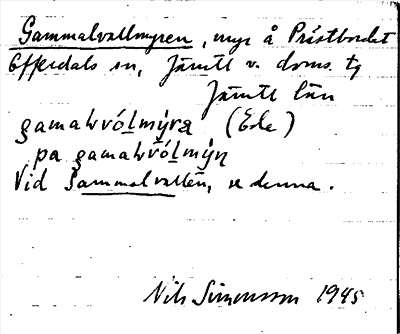 Gammalvallmyren, myr å Prästbordet
Offerdals sn, Jämtl v. doms. tg
Jämtl län
gamaƚvóḻmýra (Ede)
pa gamaƚvóḻmýn
Vid Gammelvallen, se denna.
Nils Simonsson 1945